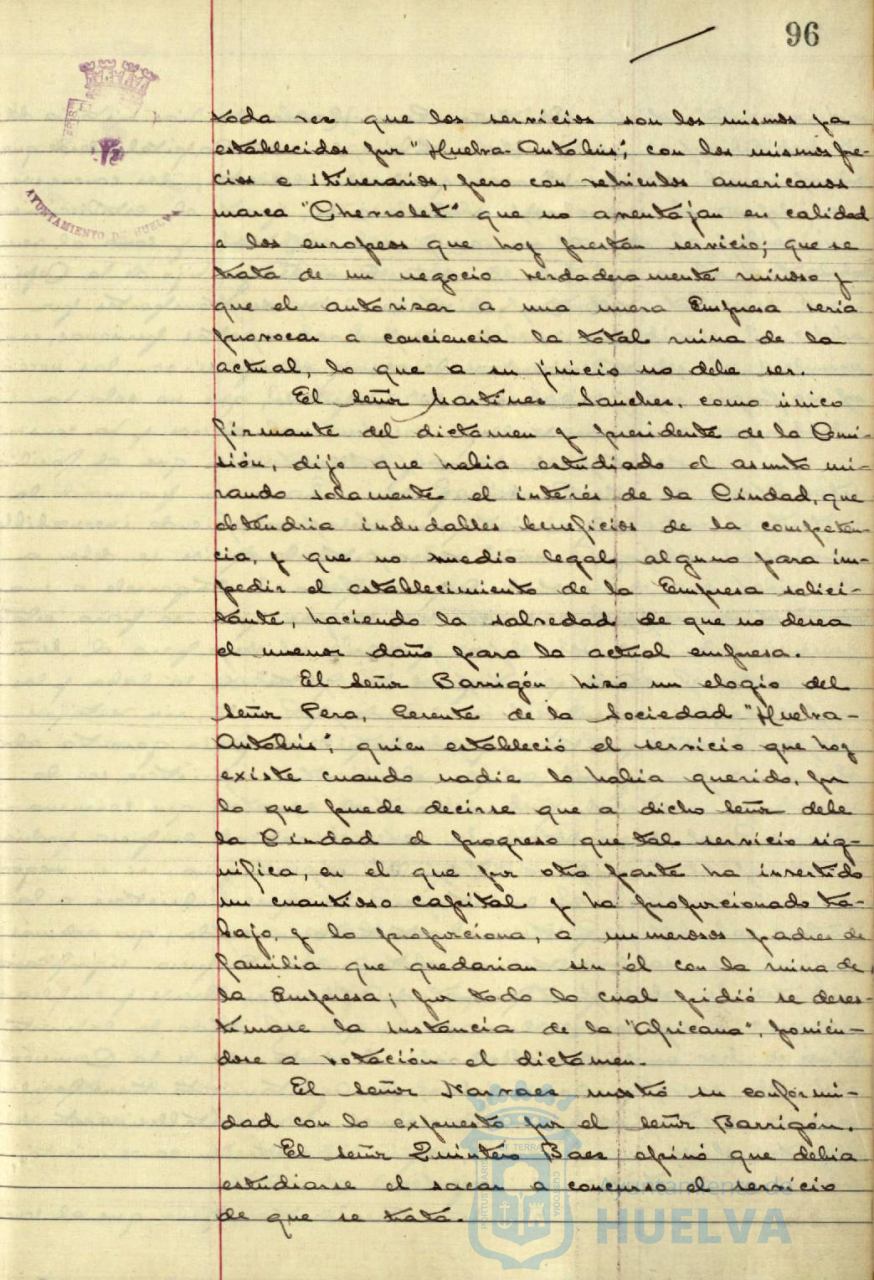 96
AYUNTAMIENTO DE HUELVA
toda vez que los servicios son los mismos ya
establecidos por "Huelva-Autobús", con los mismos pre-
cios e itinerarios, pero con vehiculos americanos
marca "Chevrolet" que no aventajan en calidad
a los europeos que hoy prestan servicio; que se
trata de un negocio verdaderamente ruinoso y
que el autorizar a una nueva Empresa seria
provocar a conciencia la total ruina de la
actual, lo que a su juicio no debe ser.
El señor Martinez Sanchez, como único
firmante del dictamen y presidente de la Comi-
sión, dijo que habia estudiado el asunto mi-
rando solamente el interés de la Ciudad, que
obtendria indudables beneficios de la competen-
cia, y que no medio legal alguno para im-
pedir el establecimiento de la Empresa solici-
tante, haciendo la salvedad de que no desea
el menor daño para la actual empresa.
El señor Barrigón hizo un elogio del
señor Pera, Gerente de la Sociedad "Huelva-
Autobús", quien estableció el servicio que hoy
existe cuando nadie lo habia querido, por
lo que puede decirse que a dicho señor debe
la Ciudad el progreso que tal servicio sig-
nifica, en el que por otra parte ha invertido
un cuantioso capital y ha proporcionado tra-
bajo, y lo proporciona, a numerosos padres de
familia que quedarian sin él con la ruina de
la Empresa; por todo lo cual pidió se deses-
timase la instancia de la "Africana", ponién-
dose a votación el dictamen.
El señor Narvaez mostró su conformi-
dad con lo expuesto por el señor Barrigón.
El señor Quintero Baez opinó que debia
estudiarse el sacar a concurso el servicio
de que se trata.
HUELVA